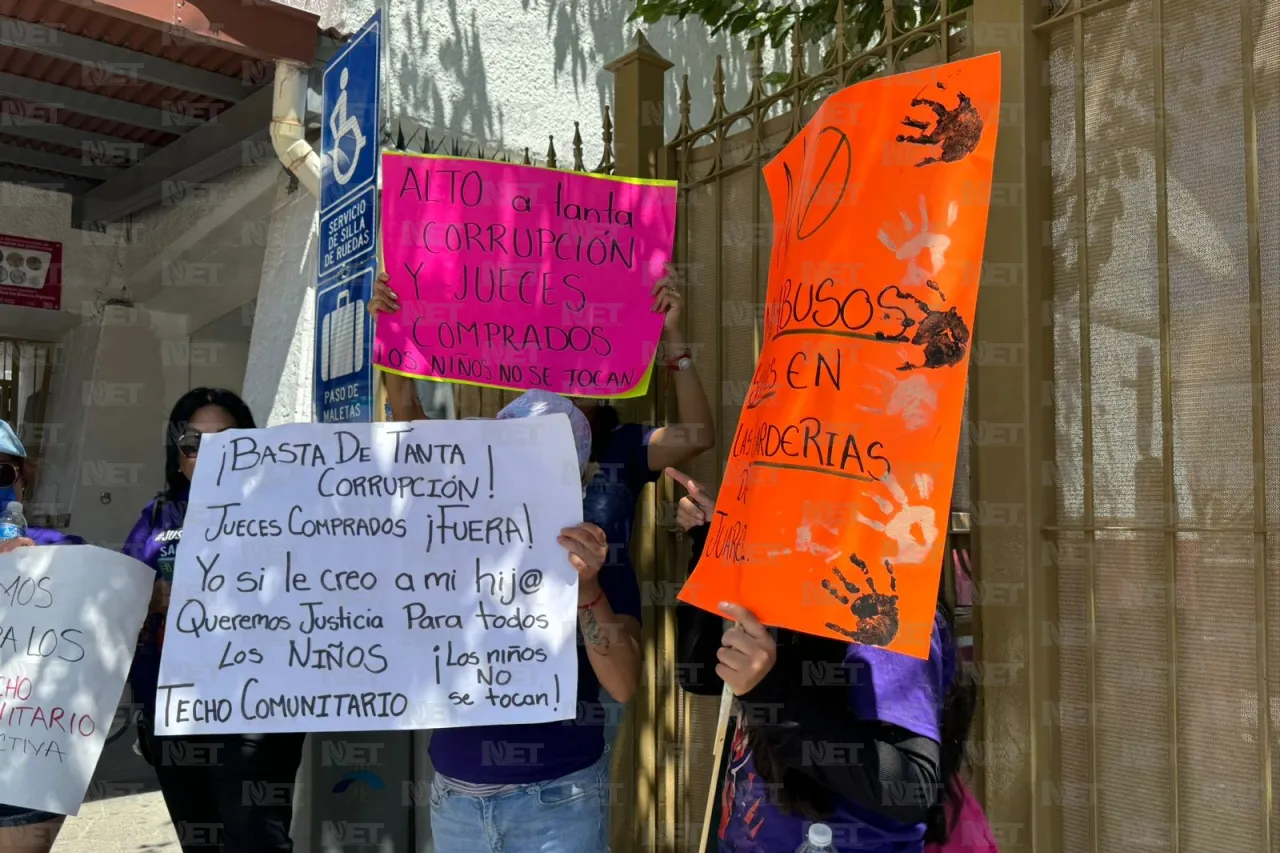 SERVICIO
DE SILLA
DE RUEDAS
PASO DE
MALETAS
ALTO a tanta
CORRUPCIÓN
Y JUECES
COMPRADOS
LOS NIÑOS NO SE TOCAN
¡BASTA DE TANTA
CORRUPCIÓN!
JUECES COMPRADOS ¡FUERA!
Yo si le creo a mi hij@
QUEREMOS JUSTICIA PARA todos
LOS NIÑOS
¡Los niños
NO
se tocan!
TECHO COMUNITARIO
NO
EN
MOS
LOS
CHO
NITARIO
CTIVA
NET